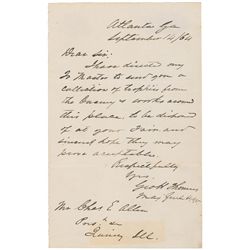 Atlanta Ga
September 14/64
Dear Sir:
I have directed my
Qr Master to send you a
collection of trophies from
the Enemy's works around
this place, to be disposed
of at your Fair and
sincerely hope they may
prove acceptable.
Respectfully
Yrs.
Geo H Thomas
Maj Genl
Mr. Chas E. Allen
Quincy Ill.